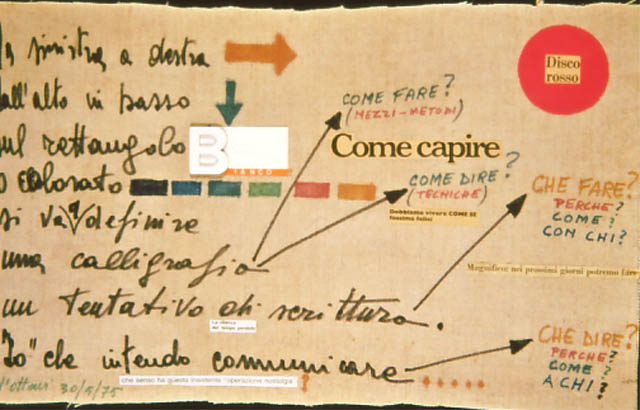 a sinistra a destra
dall'alto in basso
sul rettangolo B
IANCO
o colorato
si va a definire
una calligrafia
un tentativo di scrittura.
La ricerca
del tempo perduto
"Io" che intendo comunicare
che senso ha questa insistente operazione nostalgia ?
30/5/75
COME FARE?
(MEZZI-METODI)
Come capire
COME DIRE?
(TECNICHE)
Dobbiamo vivere COME SE
fossimo felici
Disco
rosso
CHE FARE?
PERCHE?
COME?
CON CHI?
Magnifico: nei prossimi giorni potremo fare
CHE DIRE?
PERCHE?
COME?
A CHI?